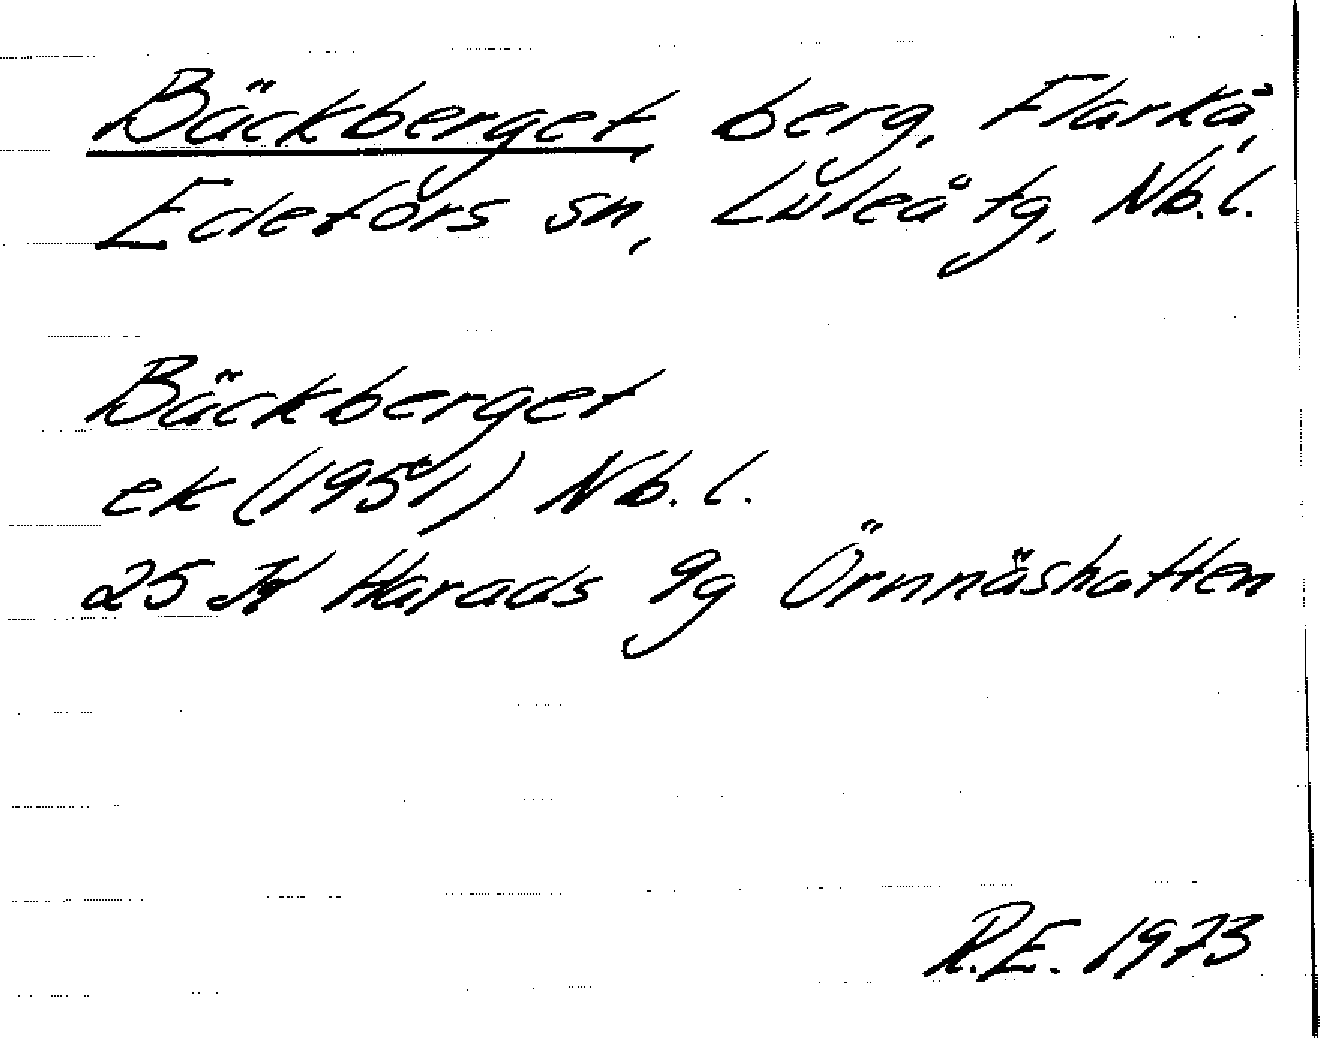 Bäckberget, berg, Flarkå,
Edefors sn, Luleå tg, Nb.l.
Bäckberget
ek (1951) Nb.l.
25 Harads 9g Örnnäshatten
R.E. 1973